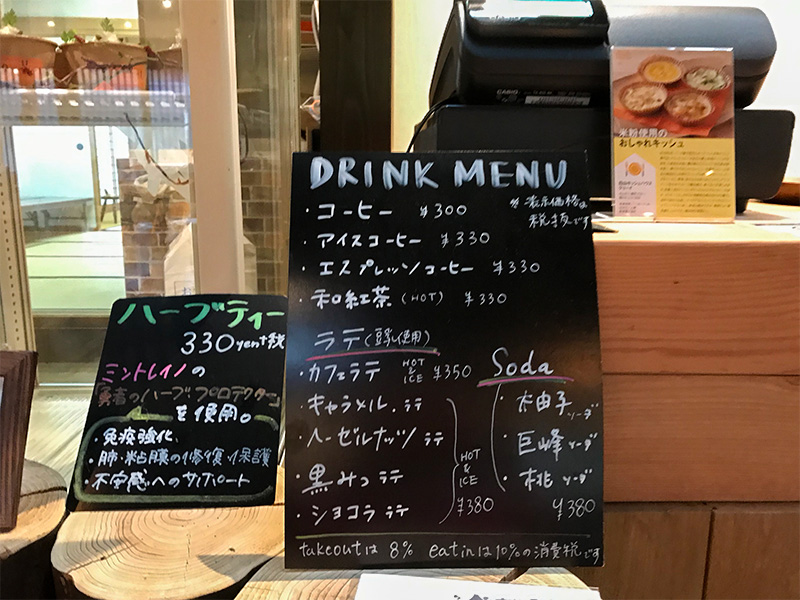 DRINK MENU
・コーヒー ¥300
※表示価格は
税抜です
・アイスコーヒー ¥330
・エスプレッソコーヒー ¥330
・和紅茶(HOT) ¥330
ラテ(豆乳使用)
・カフェラテ HOT & ICE ¥350
・キャラメルラテ
・ヘーゼルナッツラテ
・黒みつラテ
・ショコララテ
HOT & ICE
¥380
Soda
・木由子ソーダ
・巨峰ソーダ
・桃ソーダ
¥380
takeoutは 8% eatinは10%の消費税です
ハーブティー
330yen+税
ミントレイノの
「勇者のハーブ・プロテクター」
を使用。
・免疫強化
・肺・粘膜の修復・保護
・不安感へのサポート
CASIO
米粉使用の
おしゃれキッシュ